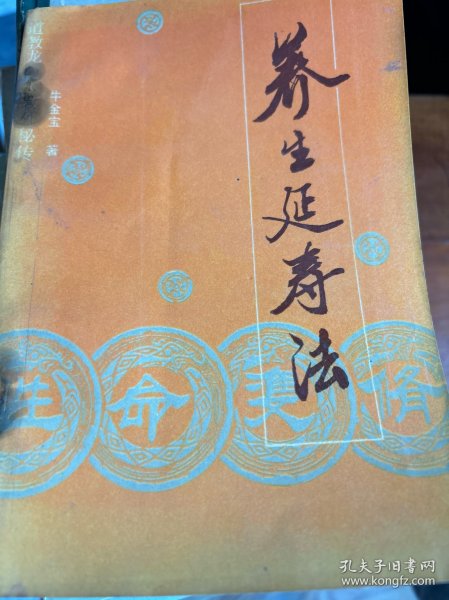 养生延寿法
道教龙
秘传
牛金宝 著
性命双修
孔夫子旧书网
www.kongfz.com